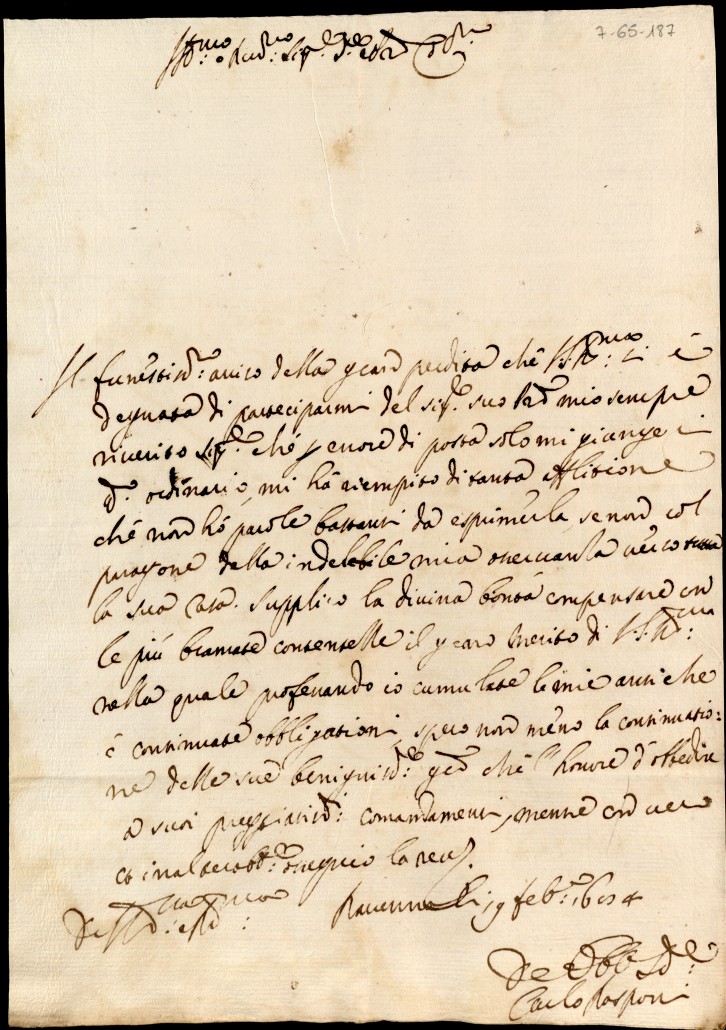 7-65-187
Ill.mo e Rev.mo Sig.r Sig.r e P.rone Col.mo
Il funestiss.o aviso della gran perdita che V.S. Ill.ma si è
degnata di participarmi del Sig.r suo Pad.e mio sempre
riverito Sig.re che p errore di posta solo mi giunge
ordinario, mi hà riempito di tanta afflitione
che non hò parole bastanti da esprimerla, se non col
paragone della indelebile mia osservanza verso tutta
la sua casa. Supplico la divina bontà compensare con
le più bramate contentezze il gran merito di V.S. Ill.ma
nella quale professando io cumulate le mie antiche
e continuate obbligationi, spero non meno la continuatio:
ne delle sue benigniss.e gratie che l'honore d'obbedire
a suoi preggiatiss.i comandamenti, mentre con vero
et inalterabil ossequio la rever.
Di V.S. Ill.ma e Rev.ma Ravenna li 19 feb.o 1694
Carlo Rasponi